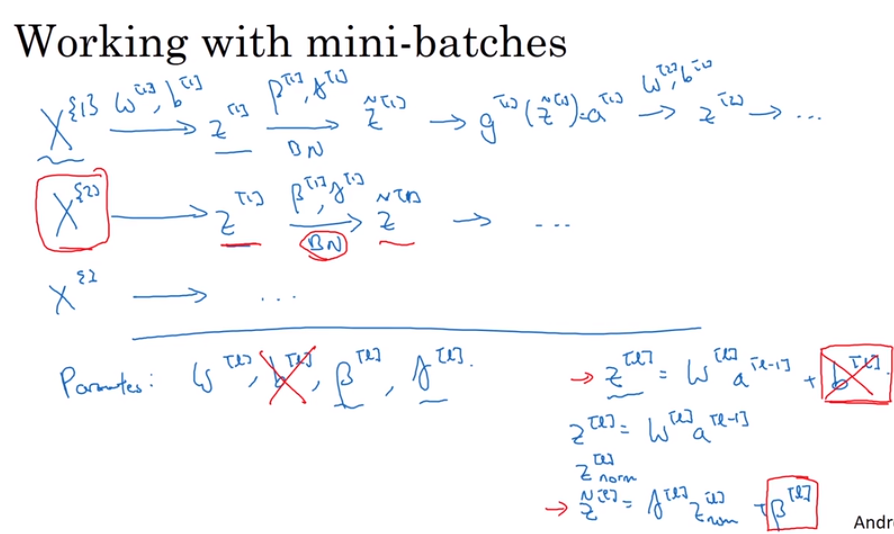 Working with mini-batches
X^{1} W^[1], b^[1] → z^[1] β^[1], γ^[1] → BN z̃^[1] → g^[1](z̃^[1]) = a^[1] W^[2], b^[2] → z^[2] → ...
X^{2} → z^[1] β^[1], γ^[1] → BN z̃^[1] → ...
X^{3} → ...
Parameters: W^[l], b^[l], β^[l], γ^[l].
→ z^[l] = W^[l] a^[l-1] + b^[l].
z^[l] = W^[l] a^[l-1]
z^[l]_norm
→ z̃^[l] = γ^[l] z^[l]_norm + β^[l]